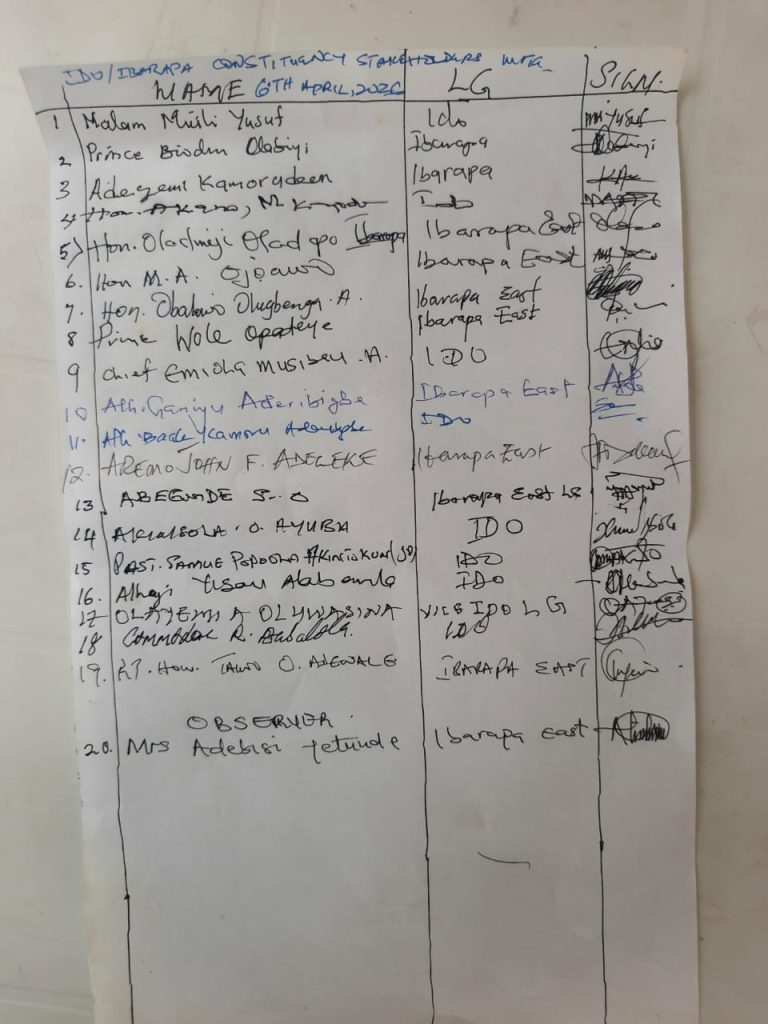 IDO/IBARAPA CONSTITUENCY STAKEHOLDERS MTG
NAME 6TH APRIL, 2026 LG SIGN.
1 Malam Musli Yusuf Ido Yusuf
2 Prince Biodun Olabiyi Ibarapa
3 Adeyemi Kamorudeen Ibarapa
4 Hon. Akano, M.
5) Hon. Oladimeji Oladapo Ibarapa Ibarapa East
6. Hon M.A. Ojoawo Ibarapa East
7. Hon. Obalowo Olugbenga .A. Ibarapa East
8 Prince Wole Opateye Ibarapa East
9 Chief Emiola Musibau .A. IDO
10 Alh. Ganiyu Aderibigbe Ibarapa East
11. Alh. Kamoru IDO
12. AREMO JOHN F. ADELEKE Ibarapa East
13 ABEGUNDE S. O Ibarapa East LG
14 O. AYUBA IDO
15 PAST. IDO
16. Alhaji IDO
17 OLAYEMI A OLUWASINA IDO LG
18 Commodore R. Babalola. IDO
19. RT. Hon. TAIWO O. ADEWALE IBARAPA EAST
OBSERVER.
20. Mrs Adebisi Yetunde Ibarapa East